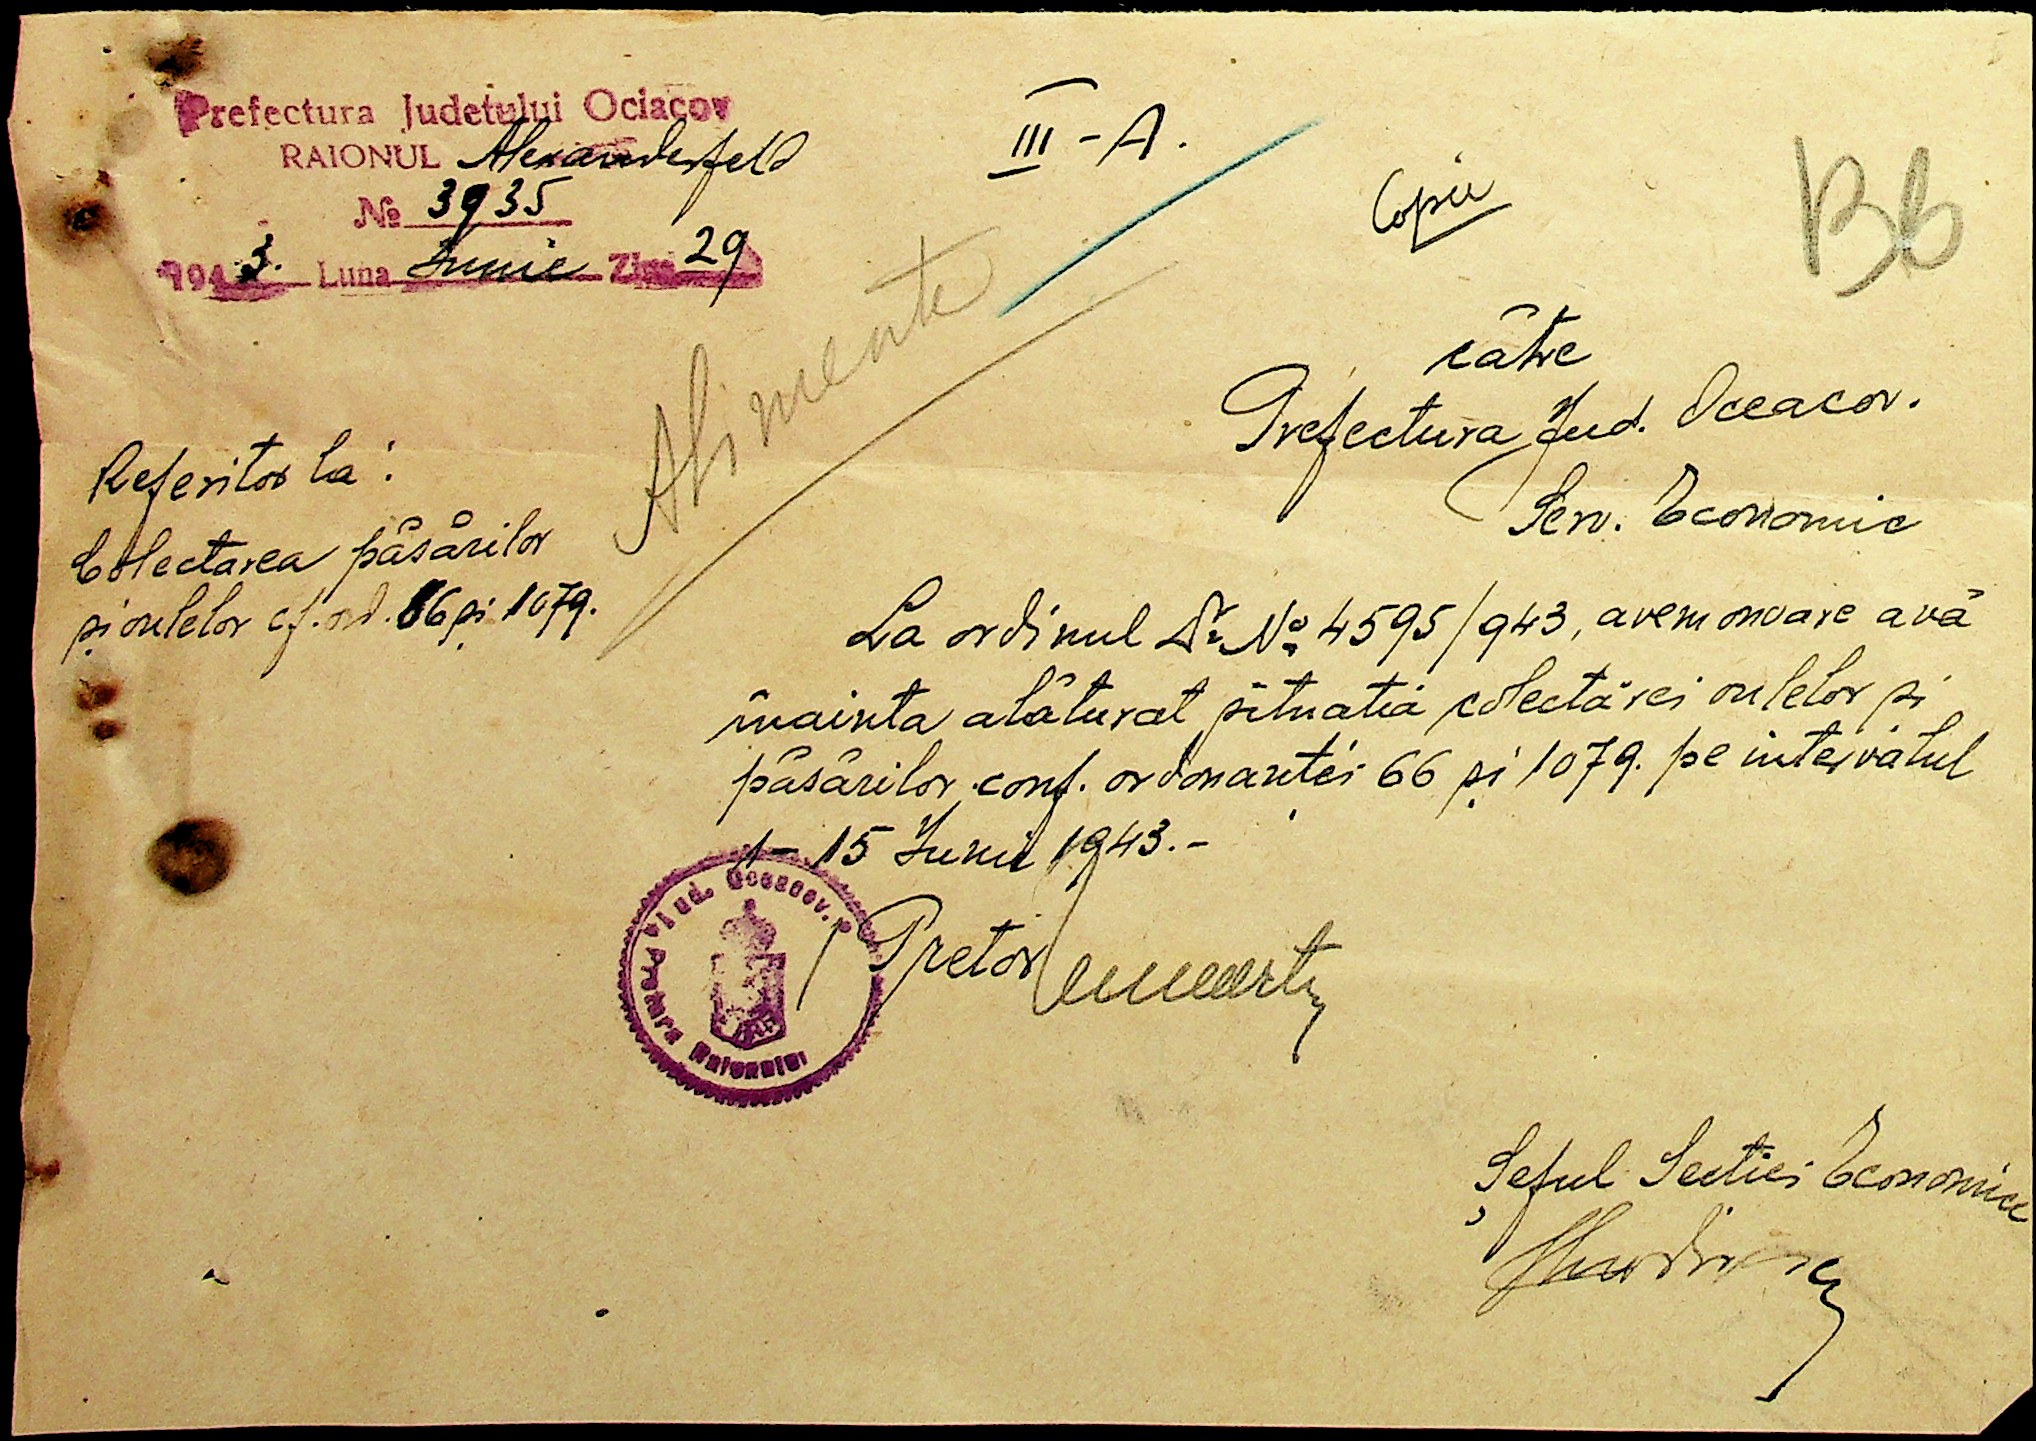 Prefectura Judetului Ociacov
RAIONUL Alexanderfeld
№ 3935
1943. Luna Iunie Ziua 29
III-A.
Copie
Bb
Alimente
către
Prefectura Jud. Oceacov.
Serv. Economic
Referitor la:
Colectarea păsărilor
și oulelor cf. ord. 66 și 1079.
La ordinul Dv. No. 4595/943, avem onoare a vă
înainta alăturat situatia colectărei oulelor și
păsărilor conf. ordonanței 66 și 1079. pe intervalul
1 - 15 Iunie 1943.-
Jud. Oceacov.
Pretura Raionului
Pretor
Șeful Sectiei Economice